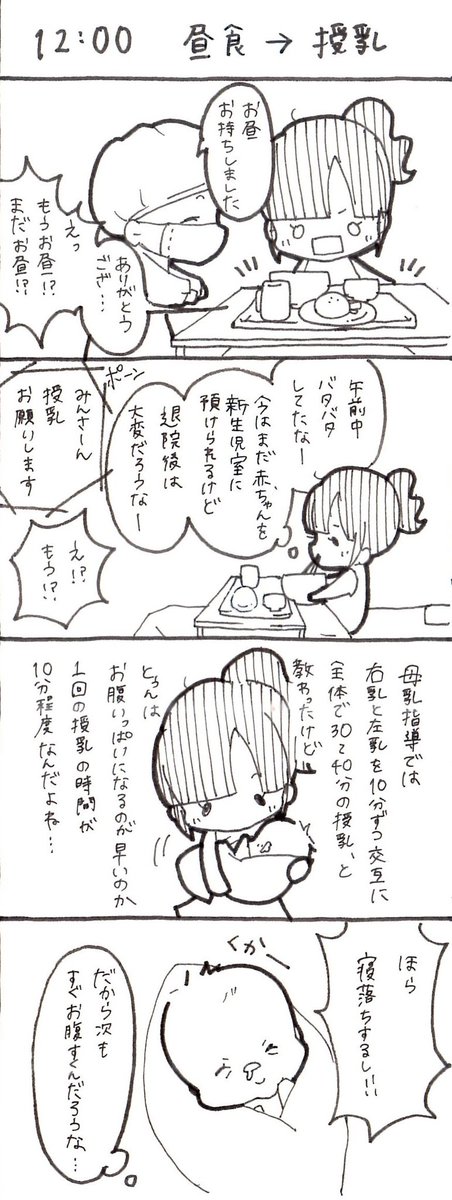 12:00 昼食→授乳
お昼
お持ちしました
ありがとう
ござ…
えっ
もうお昼!?
まだお昼!?
午前中
バタバタ
してたなー
今はまだ赤ちゃんを
新生児室に
預けられるけど
退院後は
大変だろうなー
ポーン
みんさーん
授乳
お願いします
え!?
もう!?
母乳指導では
右乳と左乳を10分ずつ交互に
全体で30〜40分の授乳、と
教わったけど
とろんは
お腹いっぱいになるのが早いのか
1回の授乳の時間が
10分程度なんだよね…
ほら
寝落ちするし!!
くかー
だから次も
すぐお腹すくんだろうな…